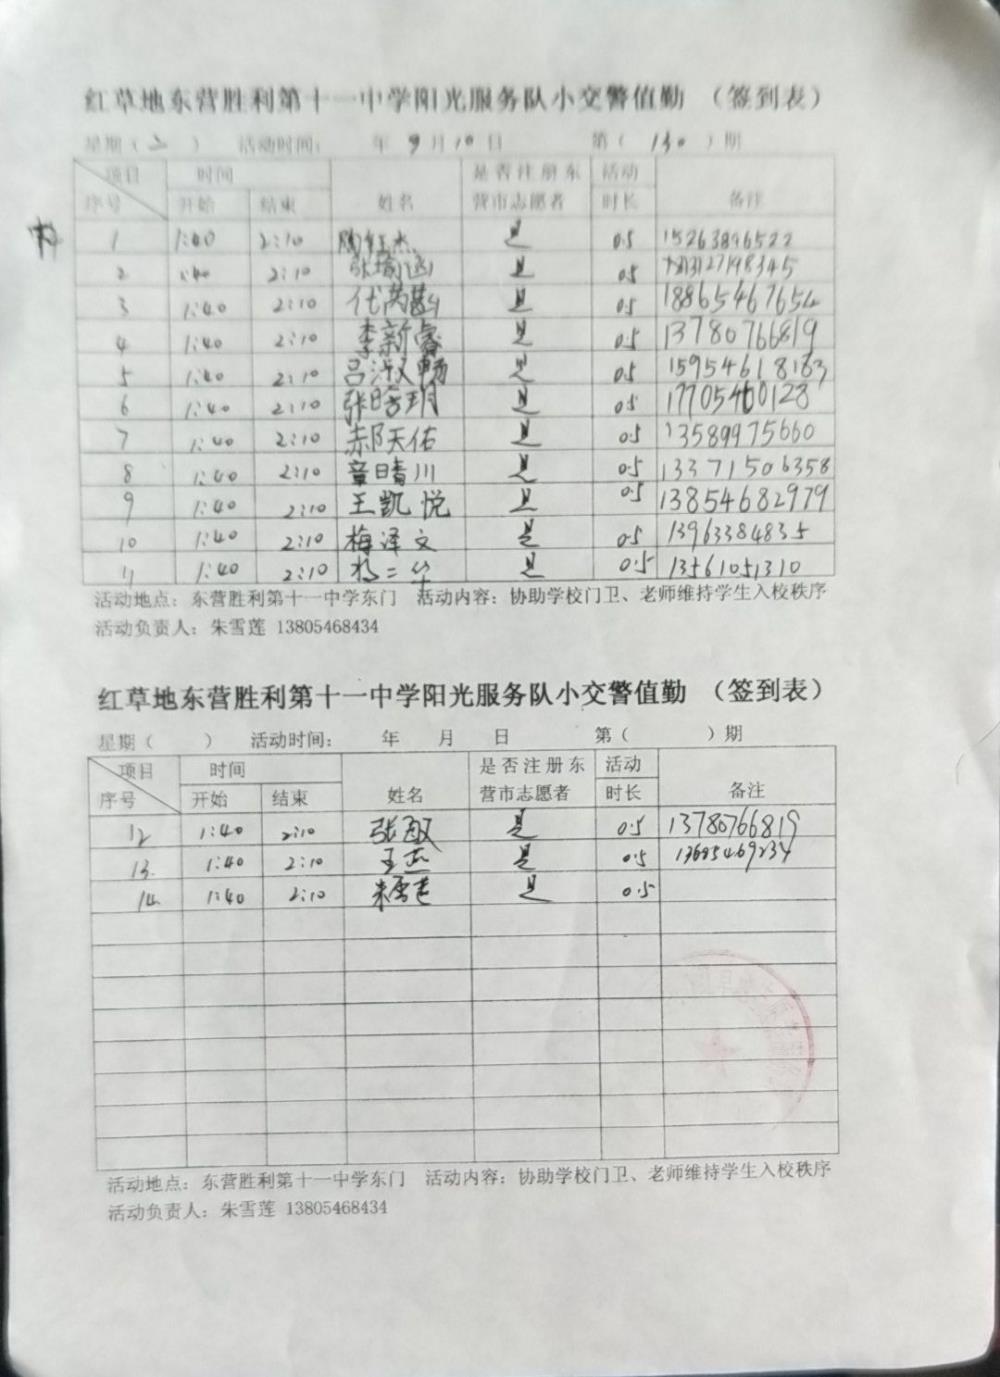 红草地东营胜利第十一中学阳光服务队小交警值勤 （签到表）
星期（二 ） 活动时间： 年 9 月 10 日 第（ 130 ）期
项目 时间 是否注册东 活动
序号 开始 结束 姓名 营市志愿者 时长 备注
1 1:40 2:10 陶红杰 是 0.5 15263896522
2 1:40 2:10 是 0.5
3 1:40 2:10 是 0.5 18865467654
4 1:40 2:10 李新睿 是 0.5 13780766819
5 1:40 2:10 吕淑畅 是 0.5 15954618183
6 1:40 2:10 张晧玥 是 0.5 17705460128
7 1:40 2:10 郝天佑 是 0.5 13589975660
8 1:40 2:10 章晴川 是 0.5 13371506358
9 1:40 2:10 王凯悦 是 0.5 13854682979
10 1:40 2:10 梅泽文 是 0.5 13963384835
11 1:40 2:10 是 0.5 13561051310
活动地点：东营胜利第十一中学东门 活动内容：协助学校门卫、老师维持学生入校秩序
活动负责人：朱雪莲 13805468434
红草地东营胜利第十一中学阳光服务队小交警值勤 （签到表）
星期（ ） 活动时间： 年 月 日 第（ ）期
项目 时间 是否注册东 活动
序号 开始 结束 姓名 营市志愿者 时长 备注
12 1:40 2:10 张敏 是 0.5 13780766819
13. 1:40 2:10 王杰 是 0.5
14. 1:40 2:10 朱雪莲 是 0.5
活动地点：东营胜利第十一中学东门 活动内容：协助学校门卫、老师维持学生入校秩序
活动负责人：朱雪莲 13805468434